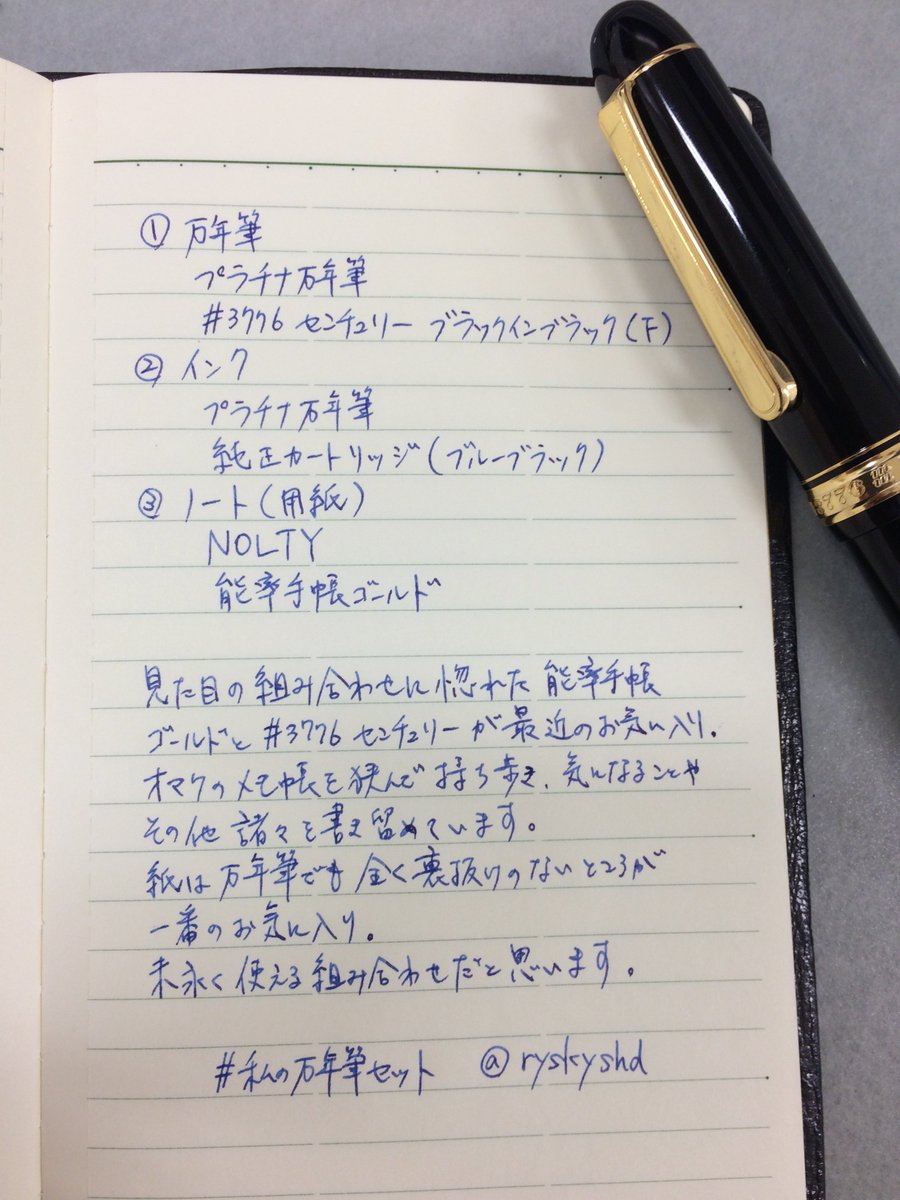 ① 万年筆
プラチナ万年筆
#3776 センチュリー ブラックインブラック(F)
② インク
プラチナ万年筆
純正カートリッジ(ブルーブラック)
③ ノート(用紙)
NOLTY
能率手帳ゴールド
見た目の組み合わせに惚れた 能率手帳
ゴールドと #3776 センチュリーが最近のお気に入り.
オマケのメモ帳を挟んで持ち歩き、気になることや
その他 諸々を書き留めています。
紙は万年筆でも全く裏抜けのないところが
一番のお気に入り。
末永く使える組み合わせだと思います。
#私の万年筆セット @ryskyshd